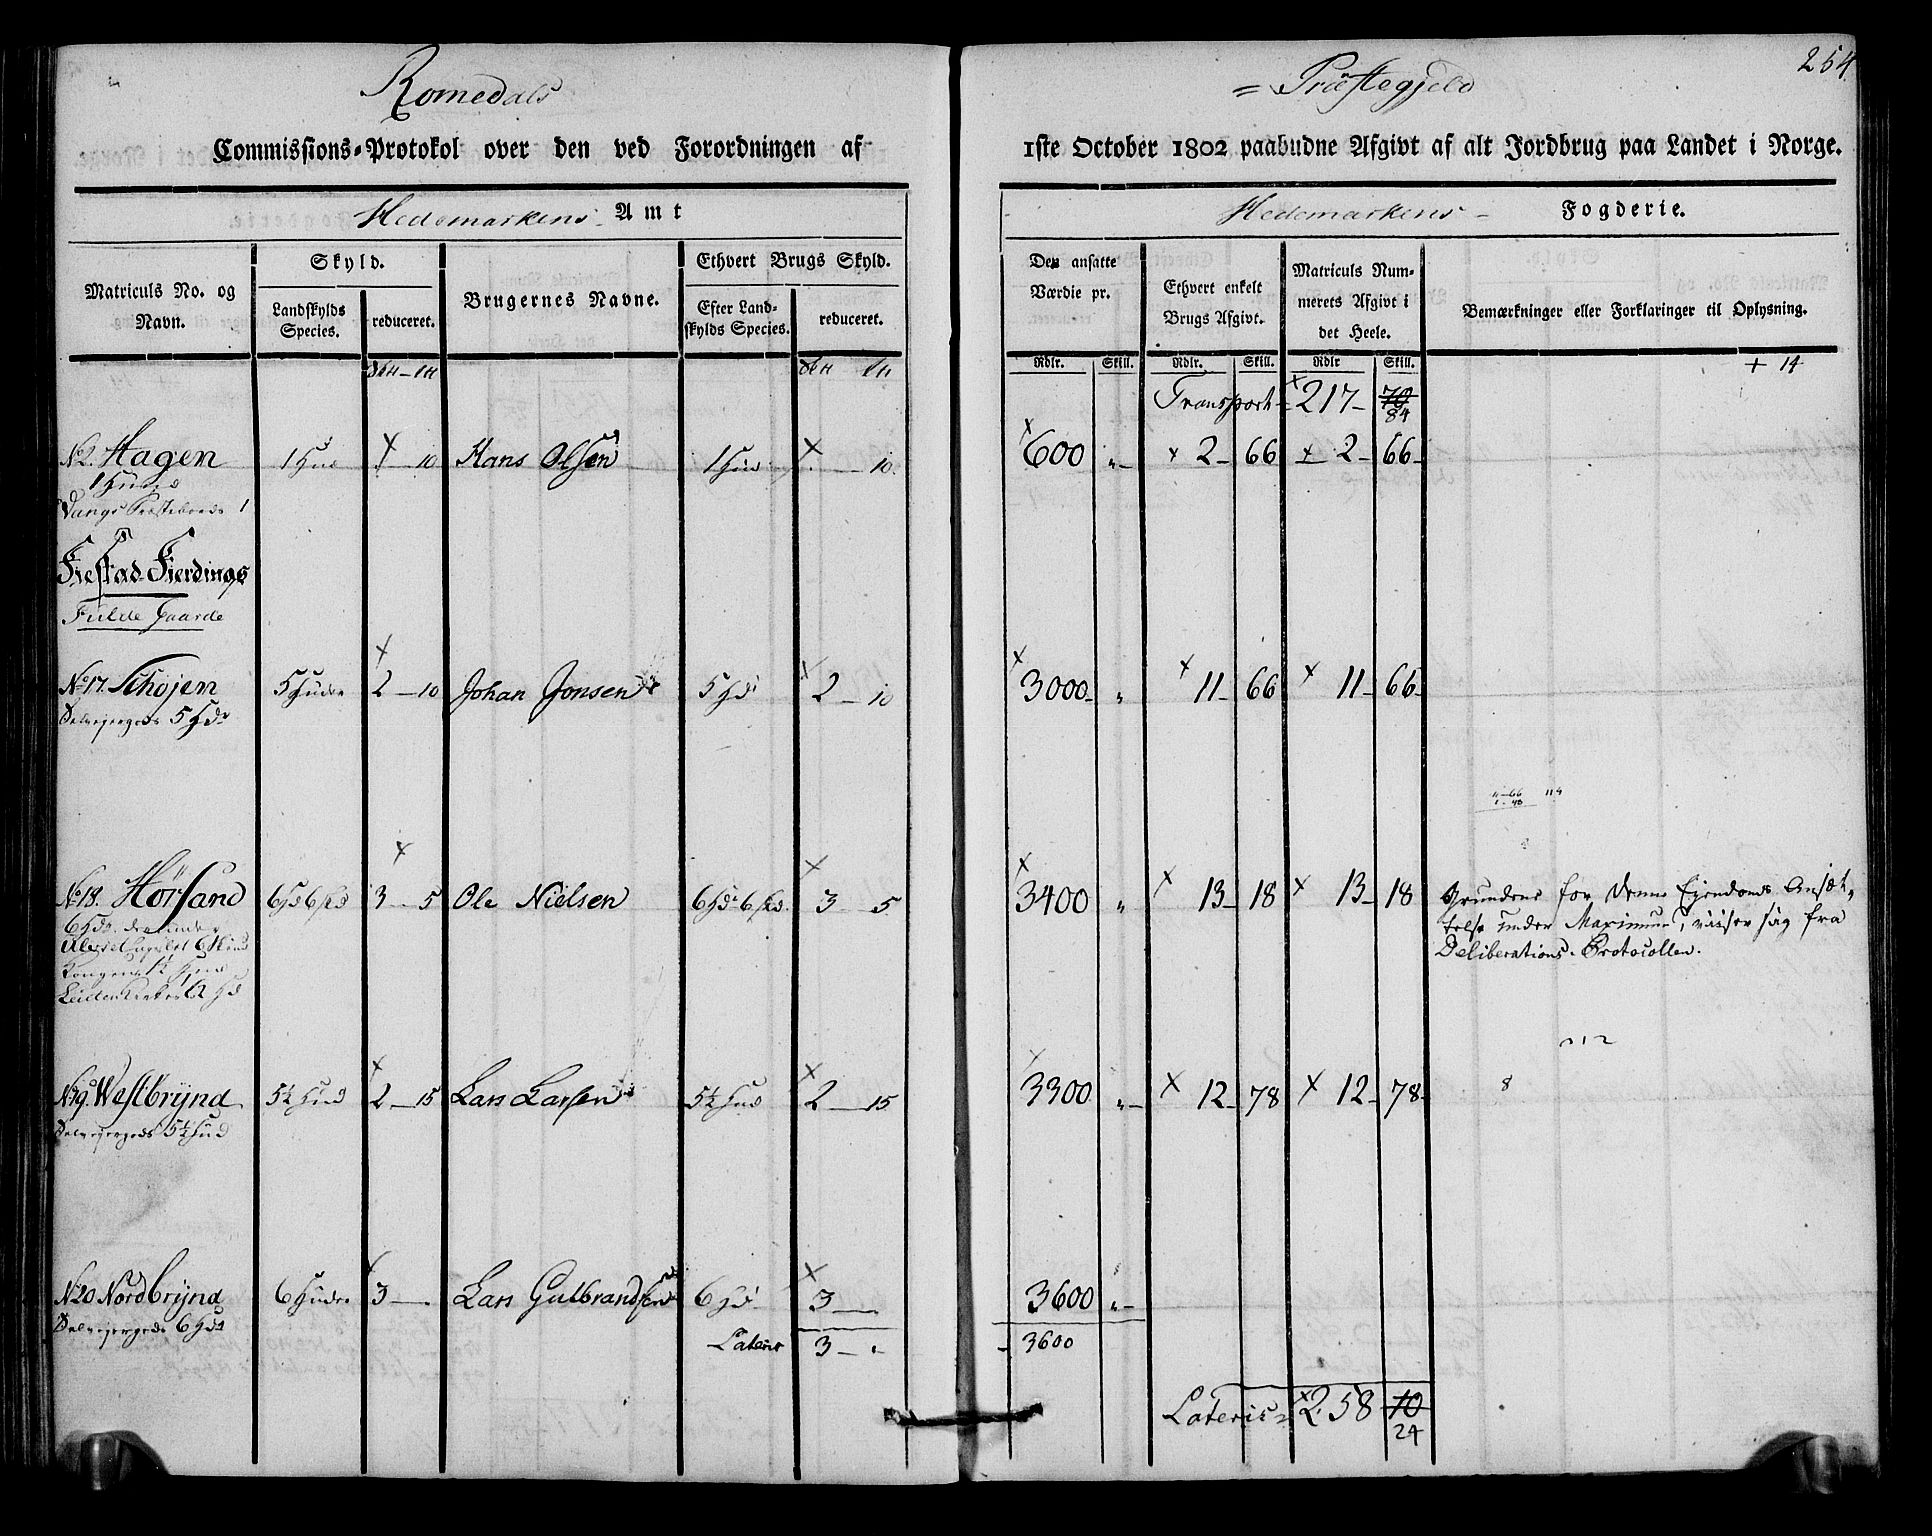 254
Romedals = Præstegjeld
Commissions-Protokol over den ved Forordningen af 1ste October 1802 paabudne Afgivt af alt Jordbrug paa Landet i Norge.
Hedemarkens Amt
Hedemarkens Fogderie.
Matriculs No. og Navn.
Skyld.
Landskylds Species.
reduceret.
Brugernes Navne.
Ethvert Brugs Skyld.
Efter Landskylds Species.
reduceret.
Den ansatte Værdie pr.
Ethvert enkelt Brugs Afgivt.
Matriculs Nummerets Afgivt i det Heele.
Bemærkninger eller Forklaringer til Oplysning.
Rdlr. Skill. Rdlr. Skill. Rdlr Skill.
+ 14
Transport 217 - 70
84
No 2. Hagen 1 Hud 1 - 10 Hans Olsen 1 Hud - 10 600 „ 2 - 66 2 - 66
1 Hud
Vangs Præsteboels 1
Fiestad Fierdings
Fulde Gaarde
No 17. Schøjen 5 Huder 2 - 10 Johan Jonsen 5 Hd 2 - 10 3000 „ 11 - 66 11 - 66
Selvejergods 5 Hdr
11-66
1-48
114
No 18. Hörsand 6 Hd 6 sk 3 - 5 Ole Nielsen 6 Hd 6 sk 3 - 5 3400 „ 13 - 18 13 - 18 Grundene for denne Ejendoms Ansæt-
telse under Maximum, viiser sig fra
Deliberations-Protocollen.
6 Hdr. derunder
No 19. Westbrÿnd 5½ Hud 2 - 15 Lars Larsen 5½ Hud 2 - 15 3300 „ 12 - 78 12 - 78
Selvejergods 5½ Hud
No 20 Nordbrÿnd 6 Huder 3 - Lars Gulbrandsen 6 Hd 3 - 3600 „
Selvejergods 6 Hdr
Lateris 3 - 3600
Lateris 258 70
24